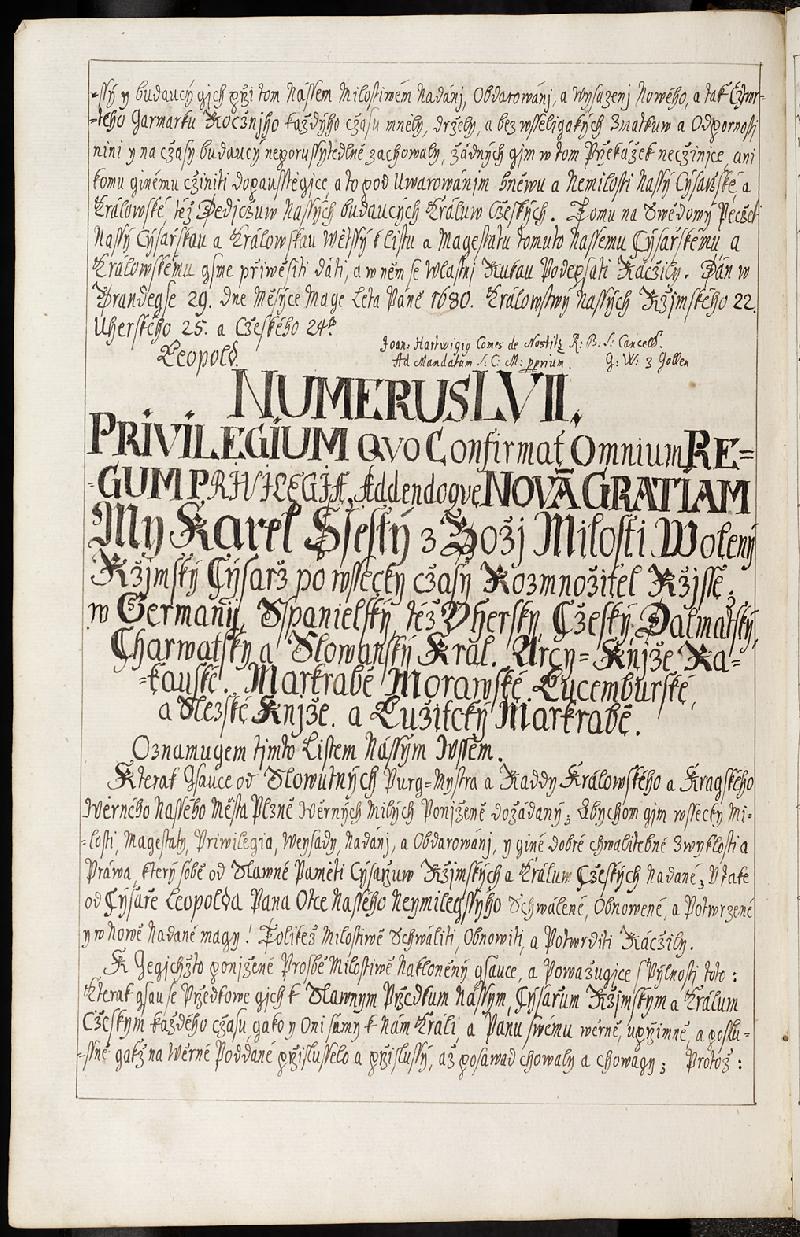 -ssý y budaucý gich při tom Nassem Milostiwém Nadánj, Obdarowánj, a Wysazenj Nowého, a tak Čtwr-
-tého Jarmarku Ročnjho každýho cžasu mněly, drželý, a bez wsseligakých Zmatkuw a Odpornosti
nini y na cžasy budaucý neporussytedlně zachowaly, žádných gim w tom Překážek necžinjce, ani
komu ginému cžiniti dopausstěgice a to pod Uwarowánjm hněwu a Nemilosti Nassý Cýsařské a
Králowské též Dědicžuw Nassých budaucých Králuw Cžeských. Tomu na Swědomý Pečeť
Nassý Cýsařskau a Králowskau Wětssý k listu a Magestátu tomuto Nassemu Cýsařskému a
Králowskému gsme přiwěsiti dáti, a w něm se Wlastnj Rukau Podepsati Ráčžily. Dán w
Brandegse 29. dne Měsýce Mage Léta Páně 1680. Králowstwý Nassých Ržjmského 22.
Uherského 25. a Cžeského 24º
Leopold. Joan: Hartwigio Comes de Nostitz R: B. S: Cancell.
Ad Mandatum S. C: M: proprium. G: W: z Gollen
NUMERUS LVII.
PRIVILEGIUM QVO Confirmat Omnium RE=
-GUM PRIVILEGIA, Addendoqve NOVĀ GRATIAM
My Karel Ssestý z Božj Milosti Wolený
Ržjmský Cýsarž po wssecky cžasy Rozmnožitel Ržjssě,
w Germanÿ, Sspanielský, též Vherský, Cžeský, Dalmatský,
Charwatský a Slowanský Král. Arcy=Knjže Ra=
-kauské. Markrabě Morawské. Lucemburské,
a Slezské Knjže. a Lužitcký Markrabě.
Oznamugem tjmto Listem Nássým Wssěm.
Kterak Gsauce od Slowutných Purg-Mystra a Raddy Králowského a Kragského
Wěrného Nassého Města Plzně Wěrných Milých Ponjženě dožádaný; Abychom gim wssecky Mi-
-losti, Magestáty, Priwilegia, Weysady, Nadánj, a Obdarowánj, y giné dobré chwalitebné Zwyklosti a
Práwa, který sobě od Slawné Paměti Cýsařuw Ržjmských a Králuw Cžeských Nadané; V také
od Cýsaře Leopolda Pana Otce Nassého Neymilegssýho Schwálené, Obnowené, a Potwrzené
y w nowě Nadané magy! Toliktéž Milostiwě Schwáliti, Obnowiti, a Potwrditi Ráčžily.
K Gegichžto ponjžené Prosbě Milostiwě Nakloněný gsauce, a Powažugice s Pýlnosti toto:
Kterak gsau se Předkowe gich k Slawnym Předkum Nássým, Cýsařum Ržjmským a Králum
Cžeskym každého cžasu gako y Oni samy k Nám Králi a Panu swému wěrně, upřimně, a poslu-
-ssně gakž na Wěrné Poddané přislusselo a přislussý, až posawad chowaly a chowagy; Protož: